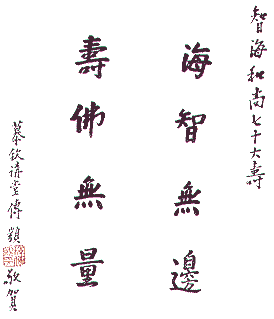 智海和尚七十大壽
海智無邊
壽佛無量
慕欽講堂傅顗
敬賀